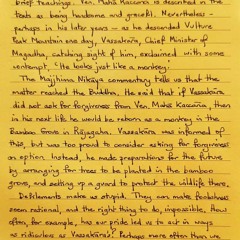 brief teachings. Ven. Mahā Kaccāna is described in the
texts as being handsome and graceful. Nevertheless -
perhaps in his later years - as he descended Vulture
Peak Mountain one day, Vassakāra, Chief Minister of
Magadha, catching sight of him, exclaimed with some
contempt, "He looks just like a monkey!"
The Majjhima Nikāya commentary tells us that the
matter reached the Buddha. He said that if Vassakāra
did not ask for forgiveness from Ven. Mahā Kaccāna, then
in his next life he would be reborn as a monkey in the
Bamboo Grove in Rājagaha. Vassakāra was informed of
this, but was too proud to consider asking for forgiveness
an option. Instead, he made preparations for the future
by arranging for trees to be planted in the bamboo
grove, and setting up a guard to protect the wildlife there.
Defilements make us stupid. They can make foolishness
seem rational, and the right thing to do, impossible. How
often, for example, has our pride led us to act in ways
as ridiculous as Vassakāra's? Perhaps more often than we